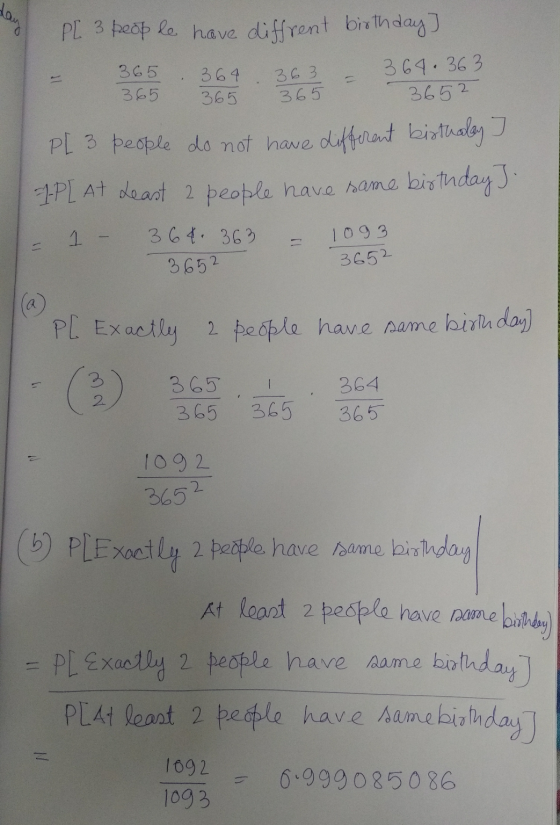 day
P[ 3 people have diffrent birthday]
= 365/365 · 364/365 · 363/365 = 364·363/365²
P[ 3 people do not have different birthday]
=1-P[At Least 2 people have same birthday].
= 1 - 364·363/365² = 1093/365²
(a)
P[ Exactly 2 people have same birthday]
= (3 2) 365/365 · 1/365 · 364/365
= 1092/365²
(b) P[Exactly 2 people have same birthday |
At least 2 people have same birthday)
= P[Exactly 2 people have same birthday]
P[At least 2 people have same birthday]
= 1092/1093 = 0.999085086